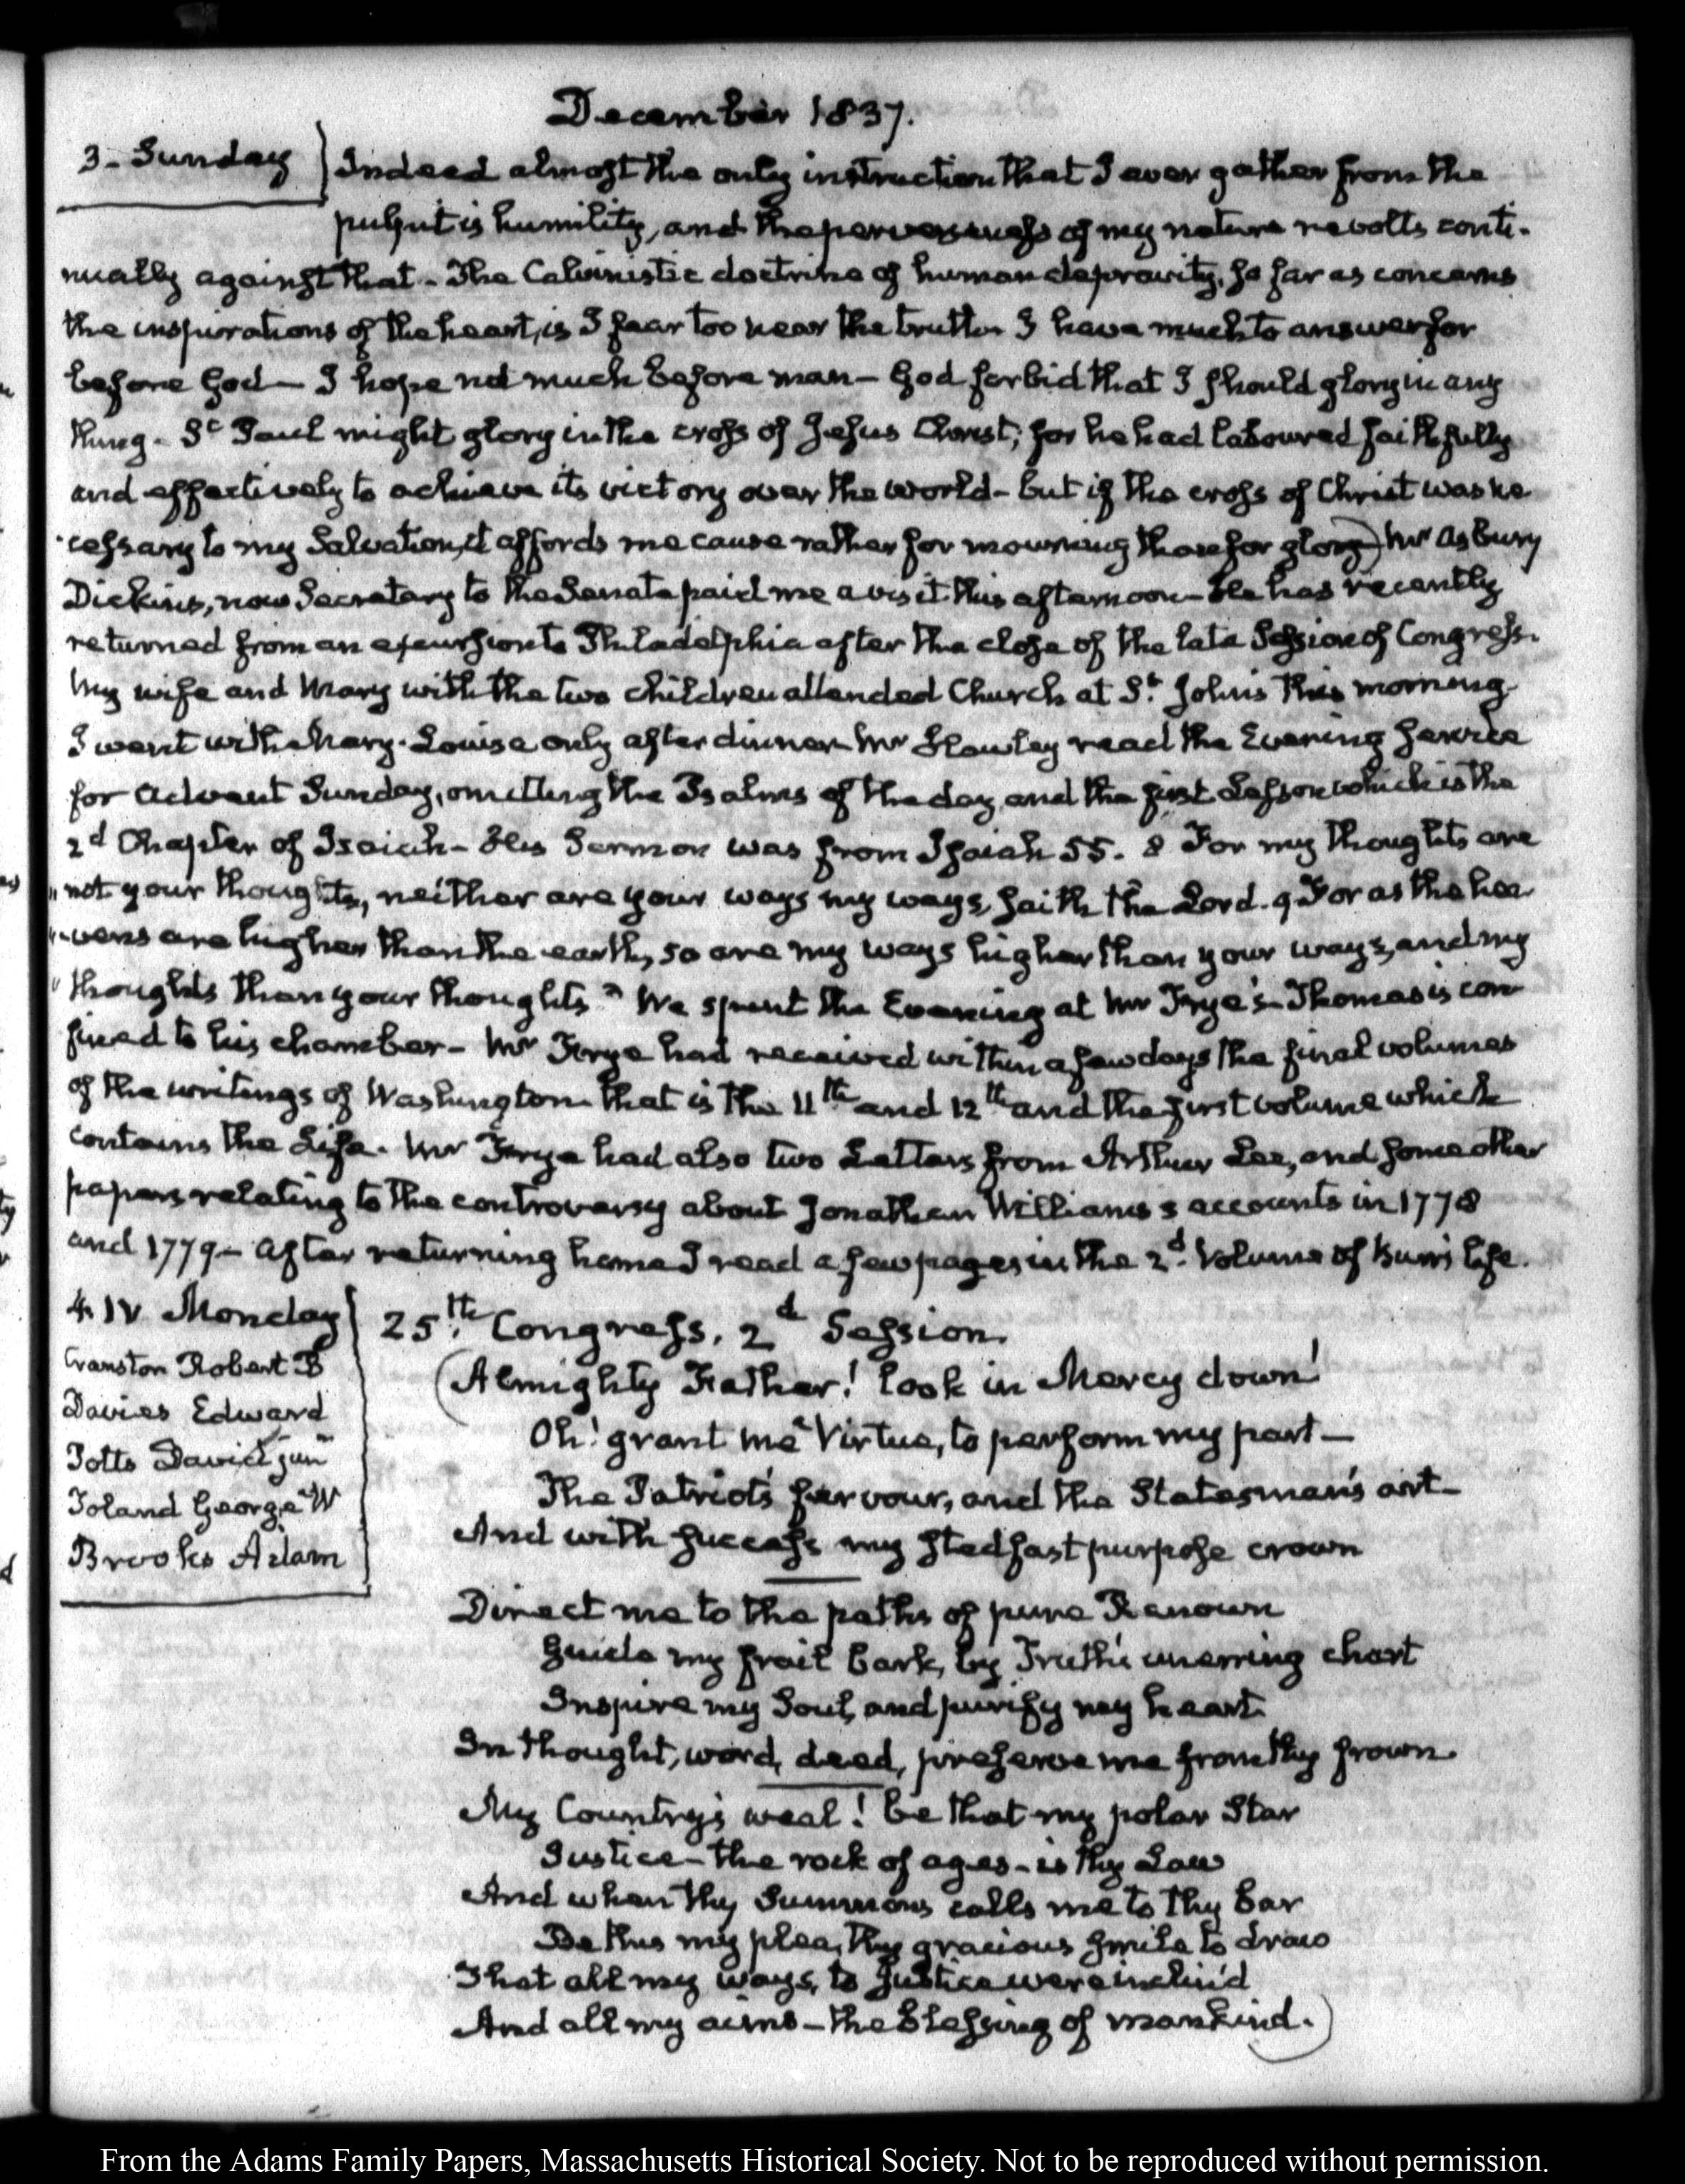 December 1837.
3. Sunday
Indeed almost the only instruction that I ever gather from the
pulpit is humility, and the perverseness of my nature revolts conti-
nually against that. The Calvinistic doctrine of human depravity, so far as concerns
the inspirations of the heart, is I fear too near the truth. I have much to answer for
before God — I hope not much before man — God forbid that I should glory in any
thing. St Paul might glory in the cross of Jesus Christ, for he had laboured faithfully
and effectively to achieve its victory over the world — but if the cross of Christ was ne
cessary to my Salvation, it affords me cause rather for mourning than for glory) Mr Asbury
Dickins, now Secretary to the Senate paid me a visit this afternoon — He has recently
returned from an excursion to Philadelphia after the close of the late Session of Congress.
My wife and Mary with the two children attended Church at St. John's this morning.
I went with Mary-Louisa only after dinner. Mr Hawley read the Evening service
for Advent Sunday, omitting the Psalms of the day, and the first Lesson which is the
2d Chapter of Isaiah — His Sermon was from Isaiah 55. 8 For my thoughts are
"not your thoughts, neither are your ways my ways, saith the Lord. 9 For as the hea
"vens are higher than the earth, so are my ways higher than your ways, and my
"thoughts than your thoughts" We spent the Evening at Mr Frye's — Thomas is con
fined to his chamber — Mr Frye had received within a few days the final volumes
of the writings of Washington that is the 11th and 12th and the first volume which
contains the Life. Mr Frye had also two Letters from Arthur Lee, and some other
papers relating to the controversy about Jonathan Williams's accounts in 1778
and 1779 — After returning home I read a few pages in the 2d. Volume of Burr's life.
4. IV. Monday
Cranston Robert B
Davies Edward
Potts David junr
Toland George W
Brooks Adam
25th. Congress, 2d Session.
(Almighty Father! look in Mercy down!
Oh! grant me Virtue, to perform my part —
The Patriot's fervour, and the Statesman's art —
And with success my stedfast purpose crown
Direct me to the paths of pure Renown
Guide my frail bark, by Truth's unerring chart
Inspire my Soul, and purify my heart.
In thought, word, deed, preserve me from thy frown.
My Country's weal! be that my polar Star
Justice — the rock of ages — is thy Law
And when thy Summons calls me to thy bar
Be this my plea, thy gracious smile to draw
That all my ways, to Justice were inclin'd
And all my aims — the blessing of mankind.)
From the Adams Family Papers, Massachusetts Historical Society. Not to be reproduced without permission.